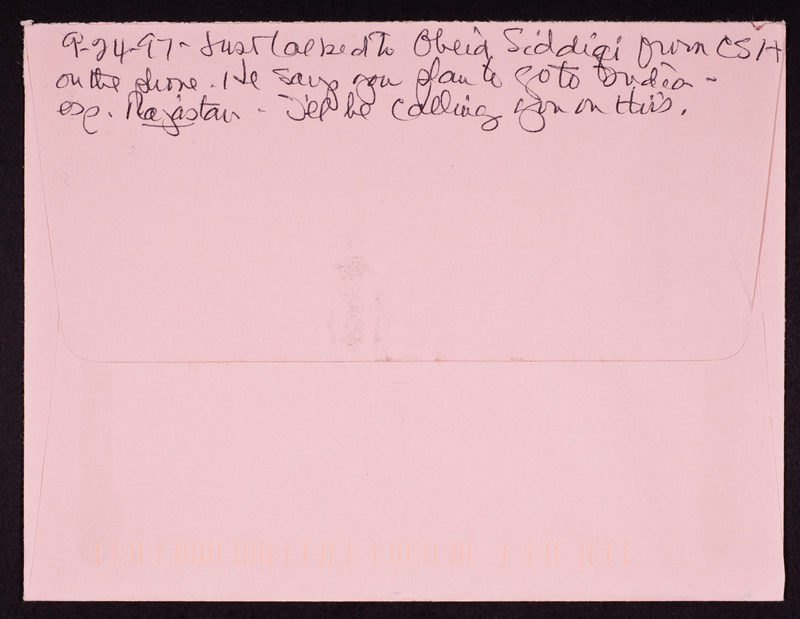 9-24-97- Just talked to Obeid Siddiqi from CSH
on the phone. He says you plan to go to India -
esp. Rajastan - I'll be calling you on this.